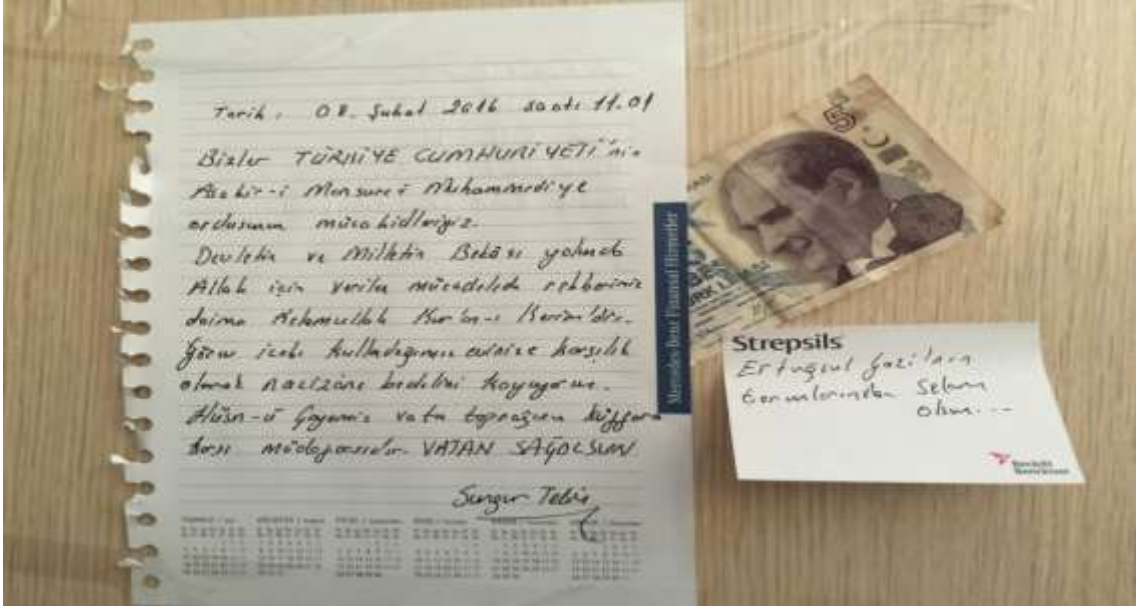 Tarih: 08. Şubat 2016 saati 11.01
Bizler TÜRKİYE CUMHURİYETİ'nin
Asakir-i Mansure-i Muhammediye
ordusunun mücahidleriyiz.
Devletin ve Milletin Bekâsı yolunda
Allah için verilen mücadelede rehberimiz
daima Kelamullah Kur'an-ı Kerim'dir.
Görev icabı kulladığımız evinize karşılık
olarak nacizane bedelini koyuyoruz.
Hüsn-ü Gayemiz vatan toprağını küffara
karşı müdafaasıdır. VATAN SAĞOLSUN
Sungur Tekin
Mercedes-Benz Finansal Hizmetler
5
Strepsils
Ertuğrul Gazi'nin
torunlarından Selam
olsun...
Reckitt
Benckiser